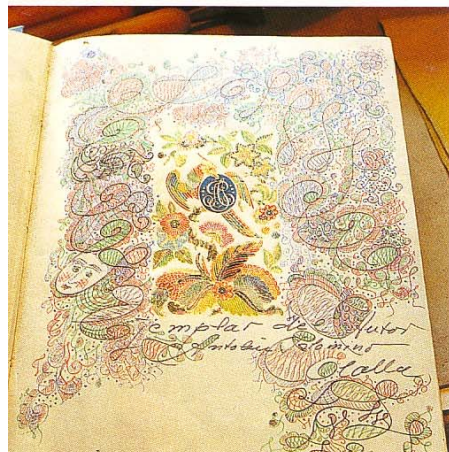 Ejemplar del Autor
Antolin Palomino
Olalla